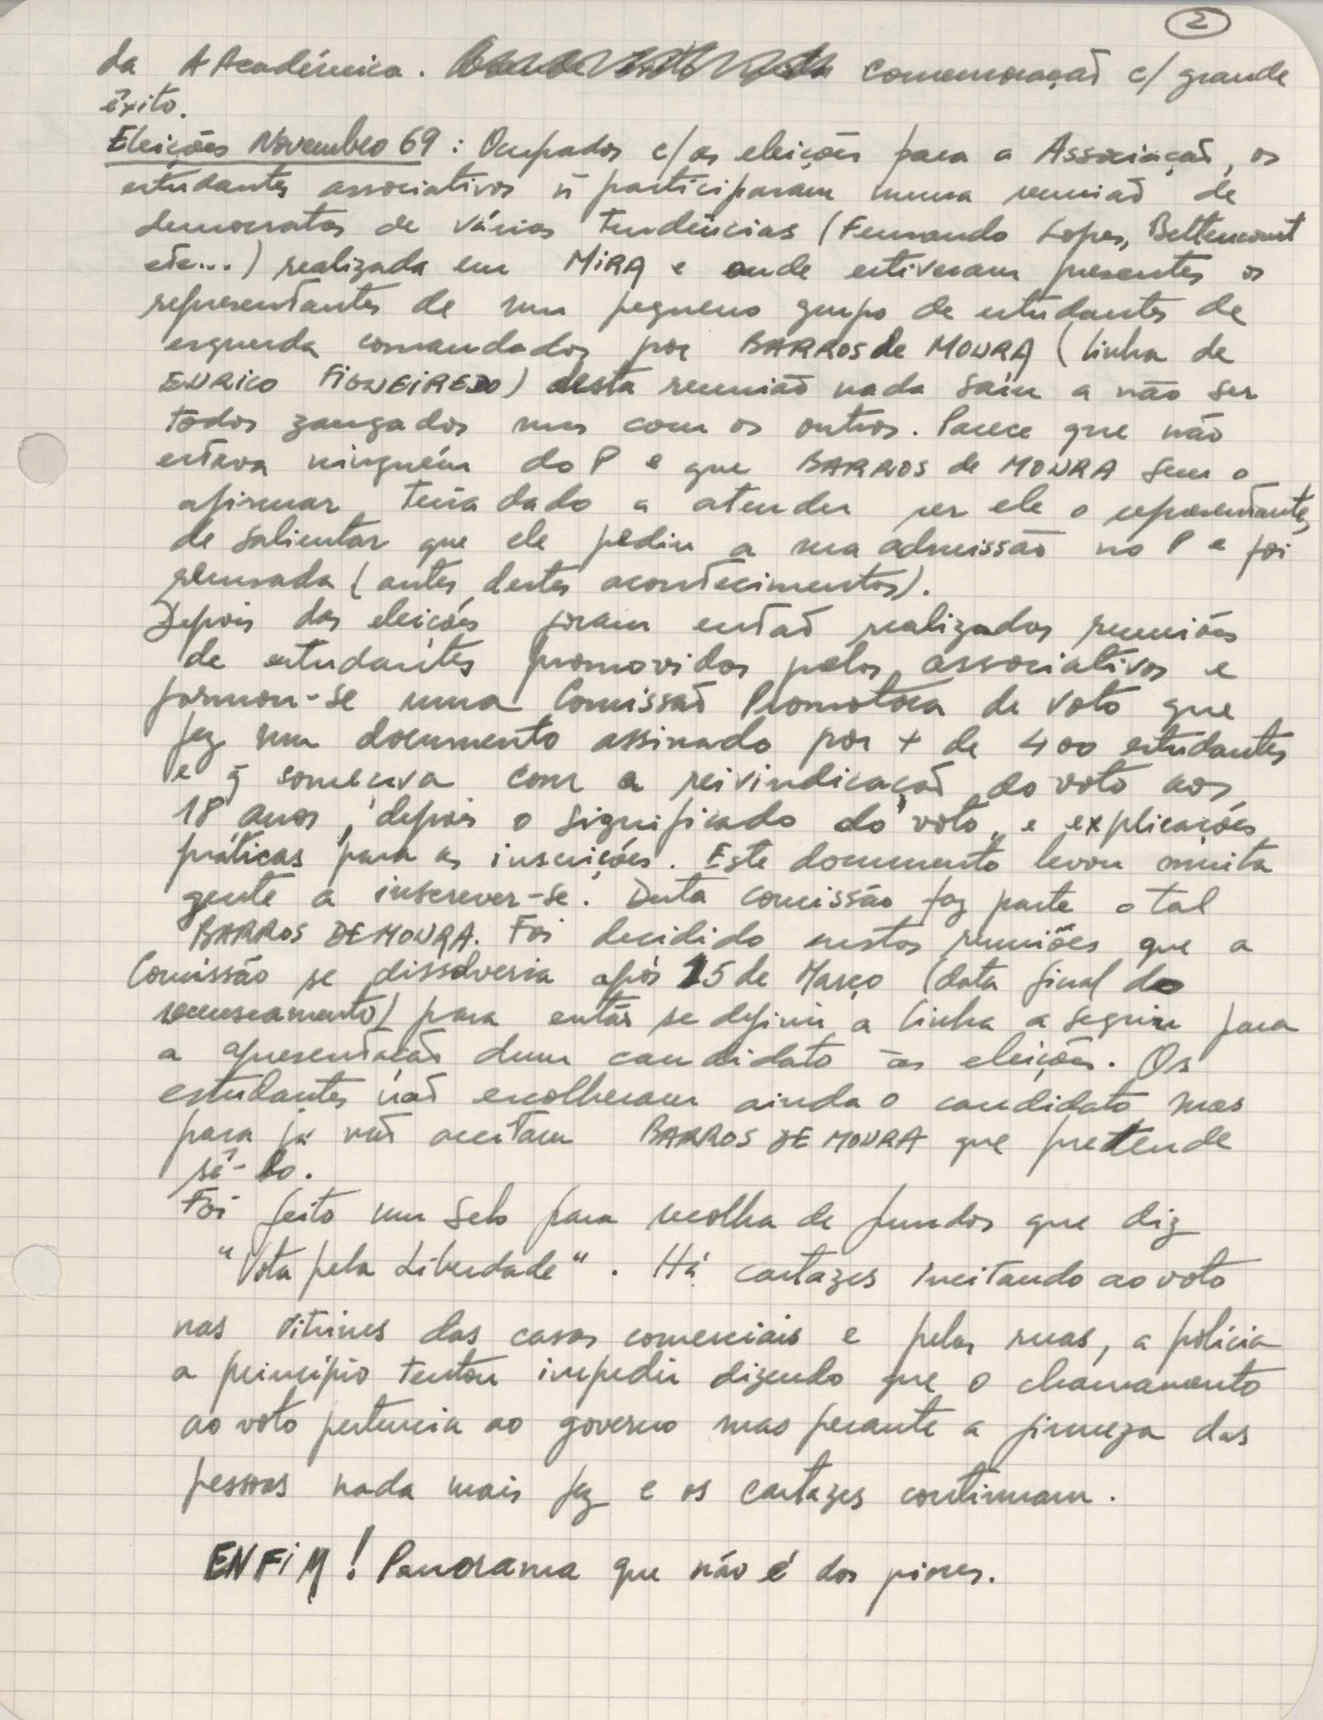 2
da A Académica. comemoração c/ grande
êxito.
Eleições Novembro 69 : Ocupados c/ as eleições para a Associação, os
estudantes associativos ñ participaram numa reunião de
democratas de várias tendências (Fernando Lopes, Bettencourt
etc...) realizada em MIRA e onde estiveram presentes os
representantes de um pequeno grupo de estudantes de
esquerda comandados por BARROS de MOURA (linha de
EURICO FIGUEIREDO) desta reunião nada saiu a não ser
todos zangados uns com os outros. Parece que não
estava ninguém do P e que BARROS de MOURA sem o
afirmar teria dado a atender ser ele o representante,
de salientar que ele pediu a sua admissão no P e foi
recusada (antes destes acontecimentos).
Depois das eleições foram então realizados reuniões
de estudantes promovidos pelos associativos e
formou-se uma Comissão Promotora de Voto que
fez um documento assinado por + de 400 estudantes
e q̃ começava com a reivindicação do voto aos
18 anos, depois o significado do voto, e explicações
práticas para as inscrições. Este documento levou muita
gente a inscrever-se. Desta comissão faz parte o tal
BARROS DE MOURA. Foi decidido nestas reuniões que a
Comissão se dissolveria após 15 de Março (data final do
recenseamento) para então se definir a linha a seguir para
a apresentação dum candidato às eleições. Os
estudantes não escolheram ainda o candidato mas
para já não aceitam BARROS DE MOURA que pretende
sê-lo.
Foi feito um selo para recolha de fundos que diz
"Vota pela Liberdade". Há cartazes incitando ao voto
nas vitrines das casas comerciais e pelas ruas, a polícia
a princípio tentou impedir dizendo que o chamamento
ao voto pertencia ao governo mas perante a firmeza das
pessoas nada mais fez e os cartazes continuam.
ENFIM! Panorama que não é dos piores.